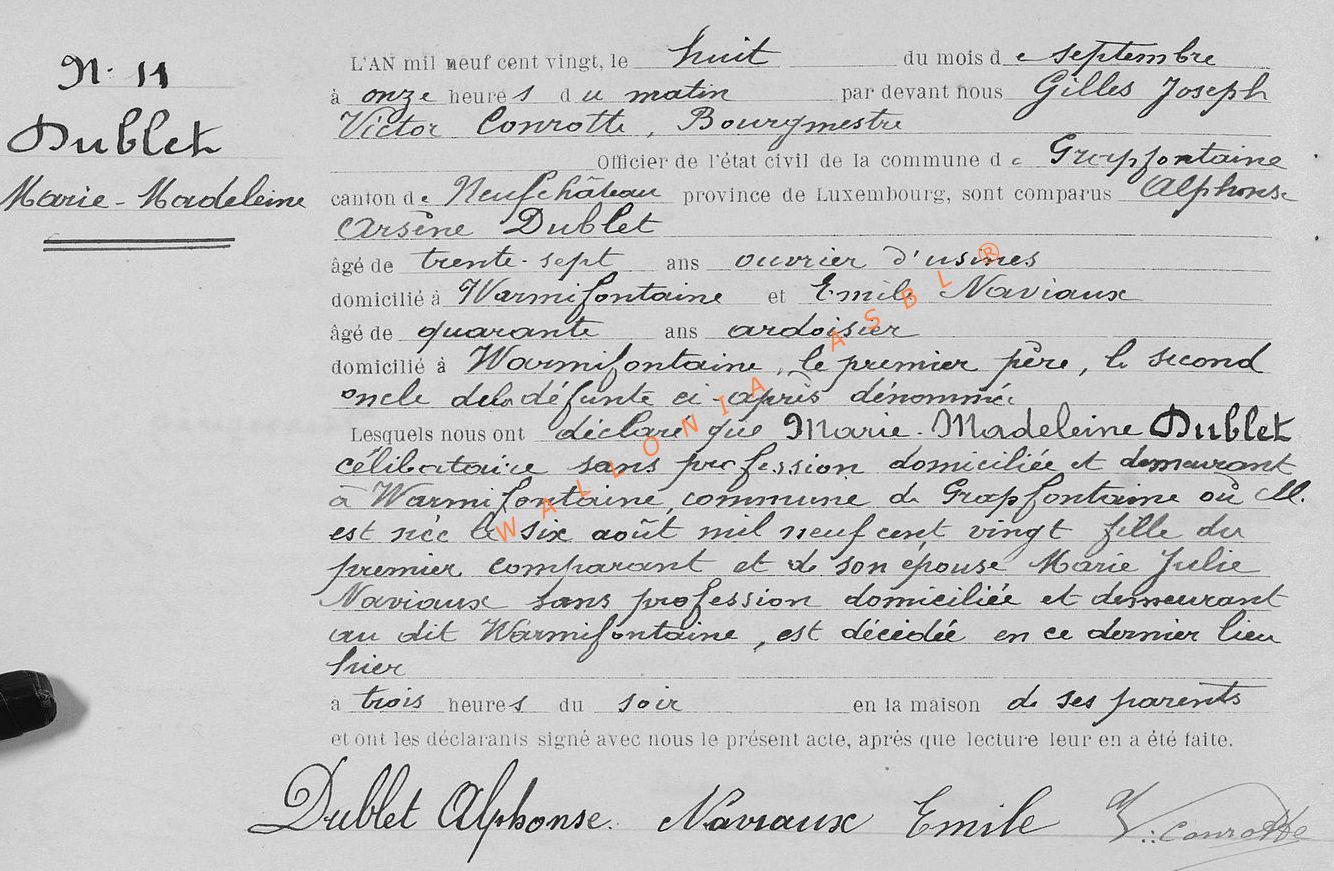 N. 11
Dublet
Marie-Madeleine
L'AN mil neuf cent vingt, le huit du mois de septembre
à onze heures du matin par devant nous Gilles Joseph
Victor Conrotte, Bourgmestre
Officier de l'état civil de la commune de Grapfontaine
canton de Neufchâteau province de Luxembourg, sont comparus Alphonse
Arsène Dublet
âgé de trente-sept ans ouvrier d'usines
domicilié à Warmifontaine et Emile Naviaux
âgé de quarante ans ardoisier
domicilié à Warmifontaine, le premier père, le second
oncle de la défunte ci-après dénommée
Lesquels nous ont déclaré que Marie-Madeleine Dublet
célibataire sans profession domiciliée et demeurant
à Warmifontaine, commune de Grapfontaine où Ell.
est née le six août mil neuf cent vingt fille du
premier comparant et de son épouse Marie Julie
Naviaux sans profession domiciliée et demeurant
au dit Warmifontaine, est décédée en ce dernier lieu
hier
à trois heures du soir en la maison de ses parents
et ont les déclarants signé avec nous le présent acte, après que lecture leur en a été faite.
Dublet Alphonse. Naviaux Emile V. Conrotte
WALLONIA ASBL ®